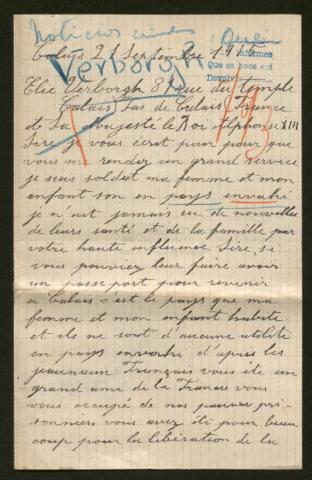 Noticias
Informes
Calais 21 Septembre 1915
Verborgh
Elie Verborgh 81 rue du Temple
Calais Pas de Calais France
et Sa Magesté le Roi Alphonse XIII
Sire je vous écrit pour pour que
vous me rendez un grand service
je suis soldat ma femme et mon
enfant son en pays envahi
je n'ait jamais eu de nouvelles
de leurs santé et de la famille par
votre haute influence Sire si
vous pouviez leur faire avoir
un passe port pour revenir
a Calais c'est le pays que ma
femme et mon enfant habite
et ils ne sont d'aucune utilité
en pays envahi d'après les
journaux Français vous ete un
grand ami de la France vous
vous occupé de nos pauvre pri-
sonniers vous avez été pour beau
coup pour la libération de la